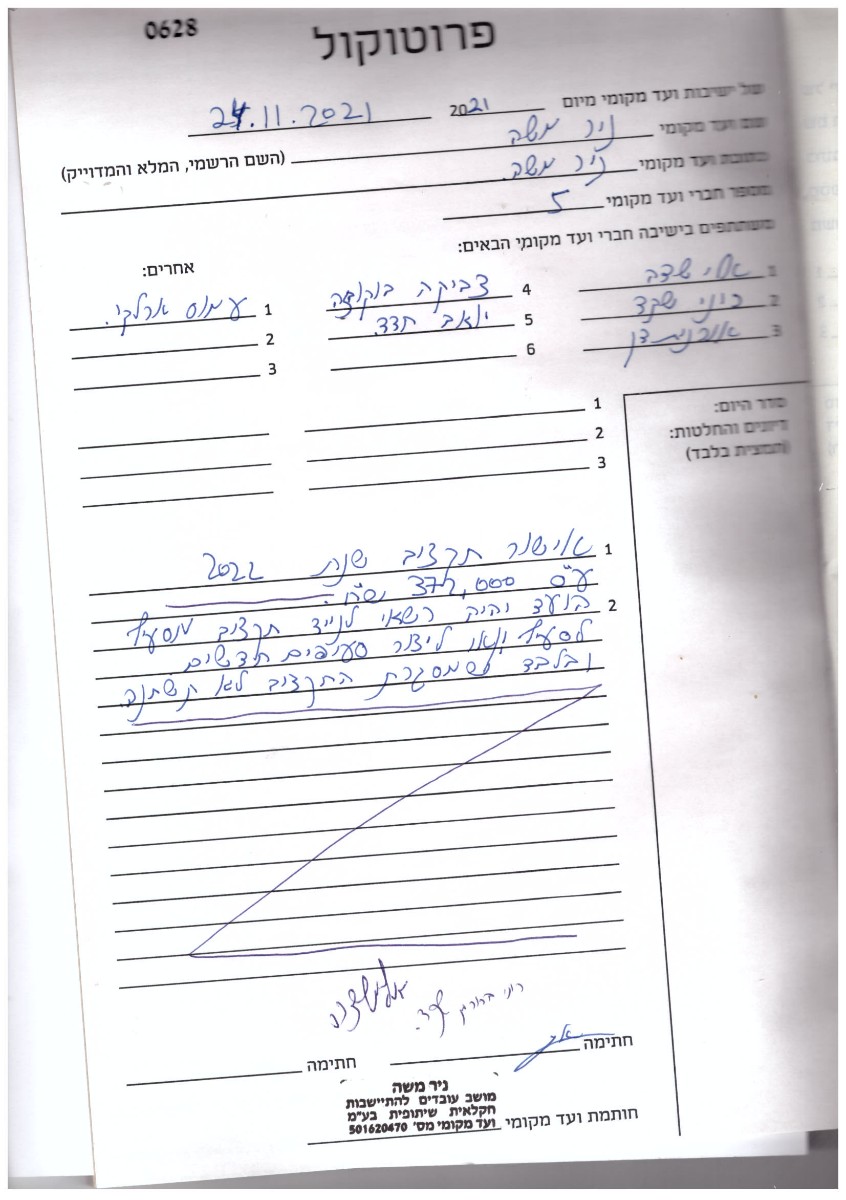 0628
פרוטוקול
של ישיבות ועד מקומי מיום 2021 24.11.2021
שם ועד מקומי ניר משה (השם הרשמי, המלא והמדוייק)
כתובת ועד מקומי ניר משה
מספר חברי ועד מקומי 5
משתתפים בישיבה חברי ועד מקומי הבאים:
אחרים:
1 אלי שדה 4 צביקה 1 עמוס
2 רוני שקד 5 יואב חדד 2
3 אורנית דן 6 3
סדר היום:
דיונים והחלטות:
(תמצית בלבד)
1
2
3
1 אישור תקציב שנת 2022
ע"ס 372,000 ש"ח.
2 הועד יהיה רשאי לנייד תקציב מסעיף
לסעיף ו/או ליצור סעיפים חדשים
ובלבד שמסגרת התקציב לא תשתנה.
אלי שדה
רוני
חתימה חתימה
ניר משה
מושב עובדים להתיישבות
חקלאית שיתופית בע"מ
ועד מקומי מס' 501620470
חותמת ועד מקומי